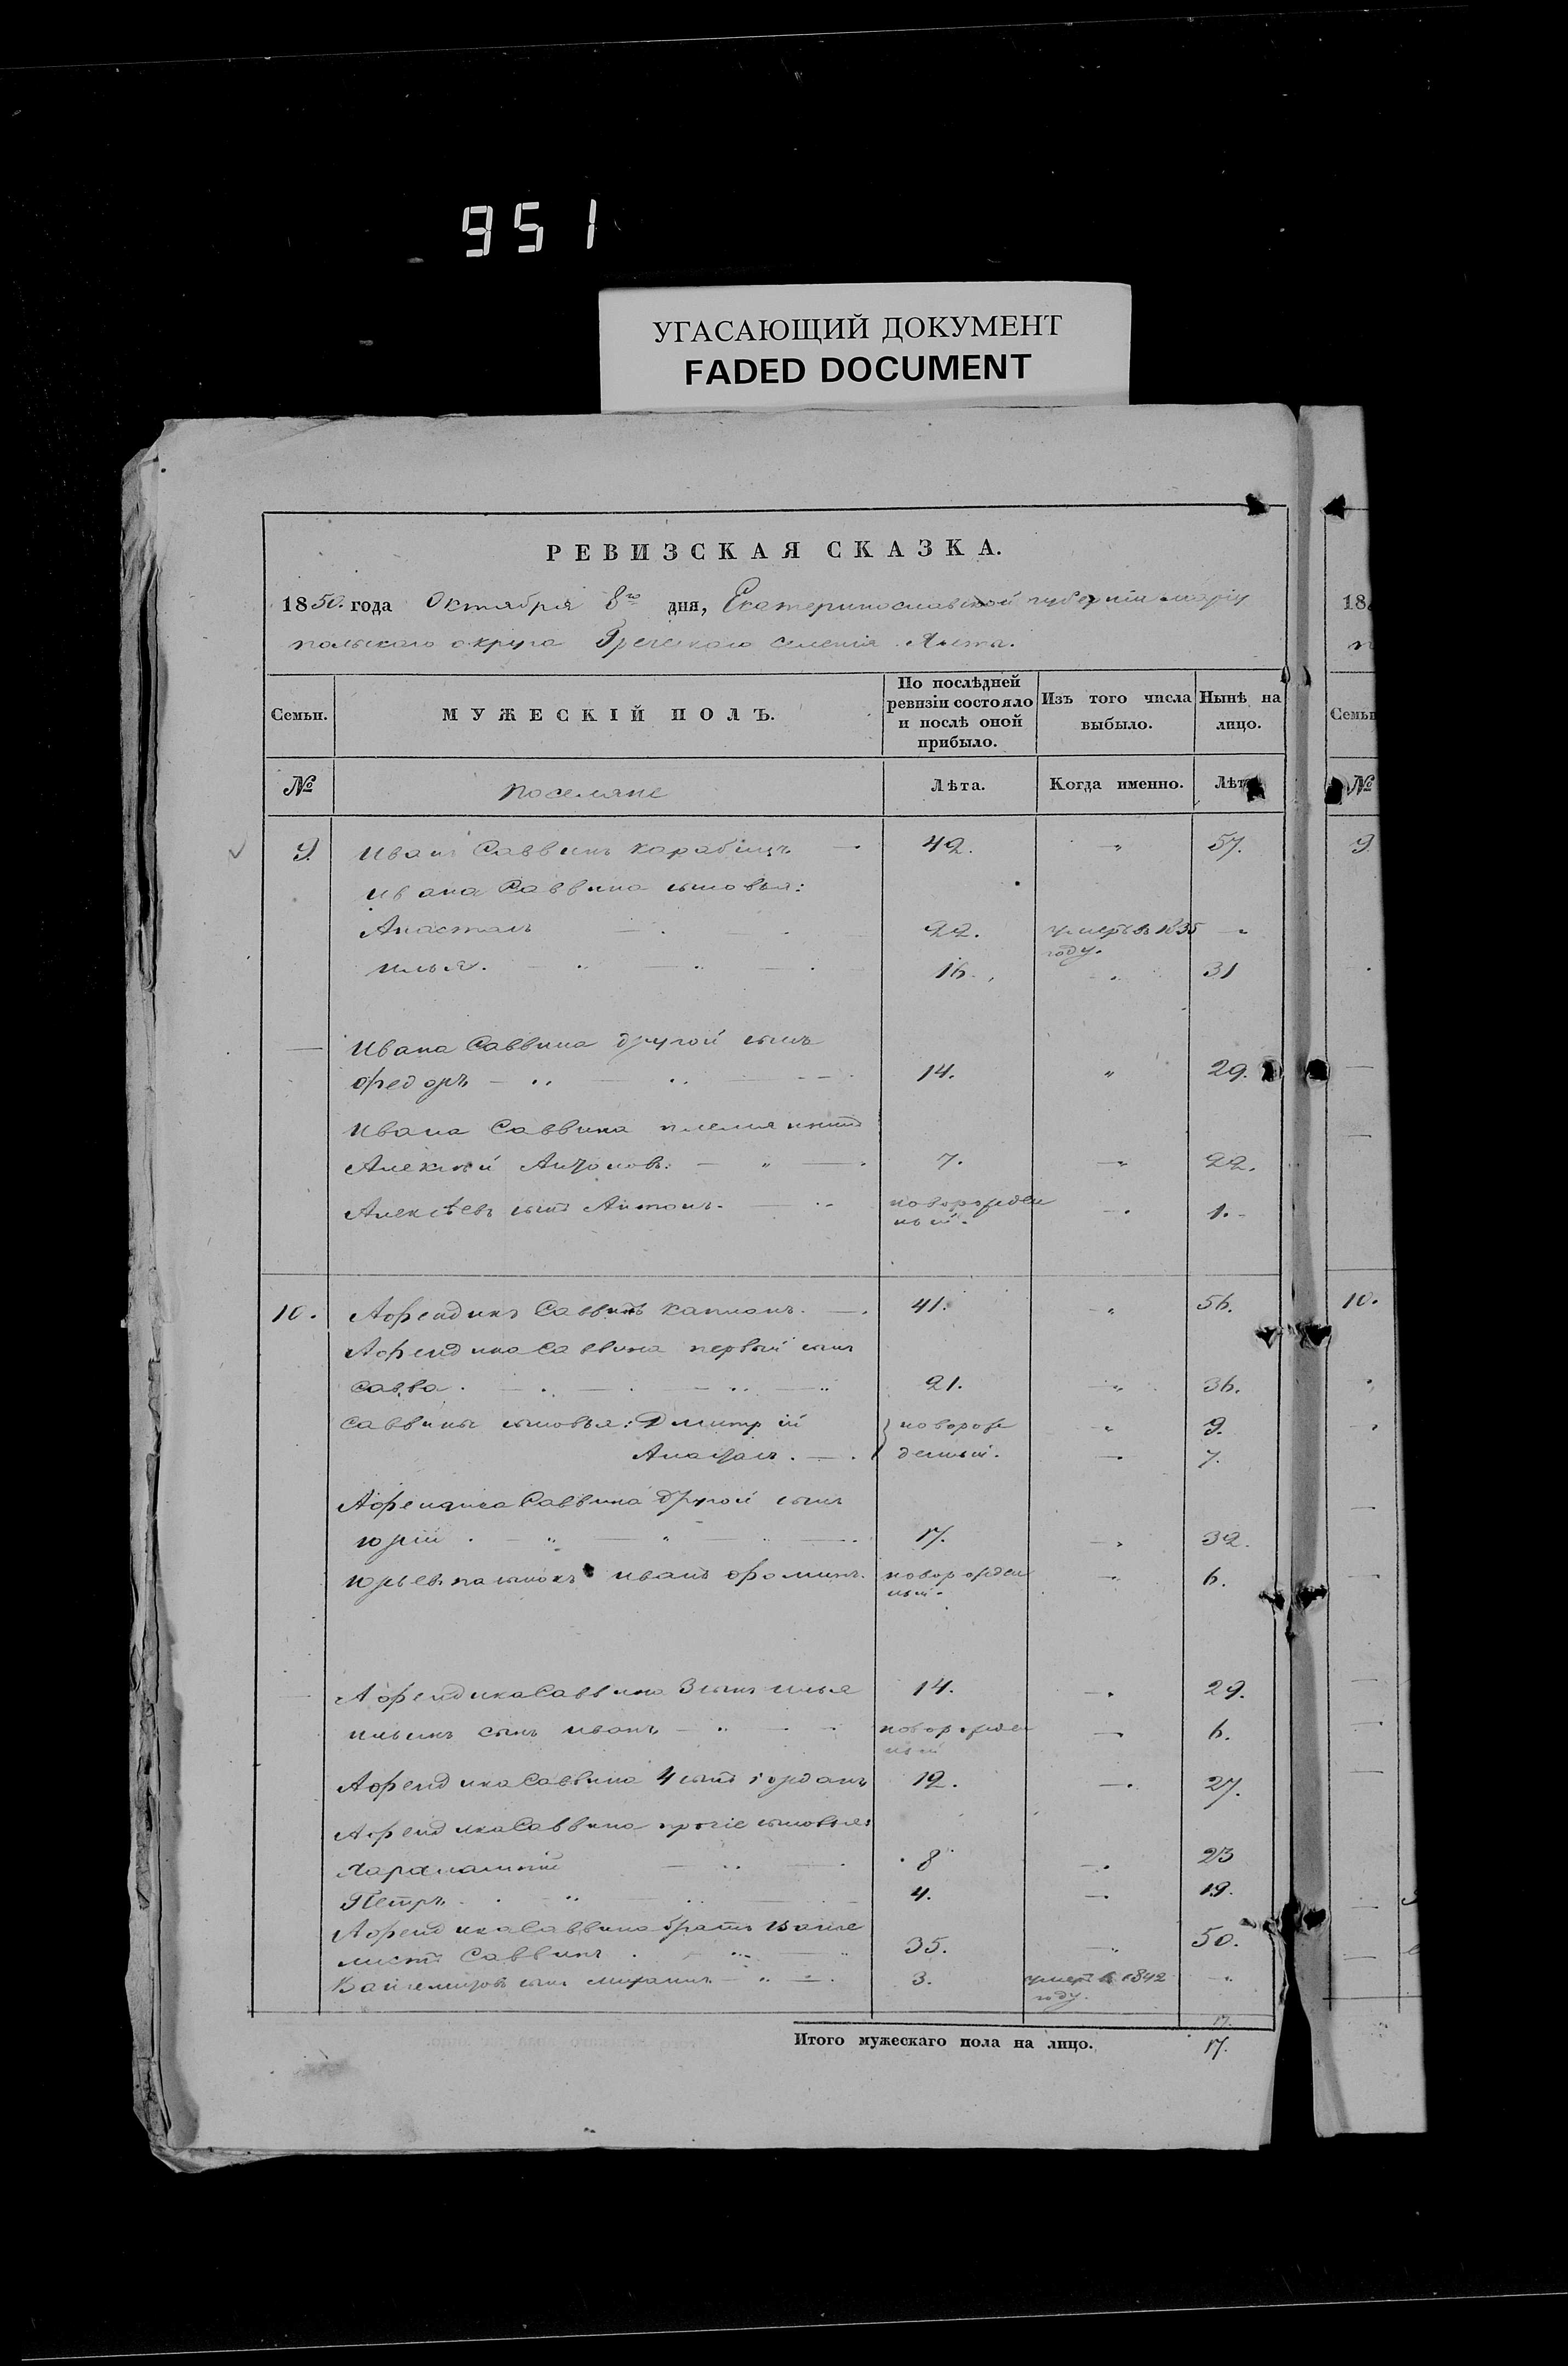 951
УГАСАЮЩИЙ ДОКУМЕНТ
FADED DOCUMENT
РЕВИЗСКАЯ СКАЗКА.
1850. года Октября 8го дня, Екатеринославской губерніи Маріу
польскаго округа Греческаго селенія Ялта.
Семьи. МУЖЕСКІЙ ПОЛЪ. По послѣдней ревизіи состояло и послѣ оной прибыло. Изъ того числа выбыло. Нынѣ на лицо.
№ поселяне Лѣта. Когда именно. Лѣта
9. Иванъ Саввинъ 42. 57.
Ивана Саввина сыновья:
Анастасъ 22. умеръ въ 1835 году.
Илья. 16. 31
Ивана Саввина другой сынъ
Федоръ 14. 29.
Ивана Саввина племянникъ
Алексѣй Антоновъ. 7. 22.
Алексѣевъ сынъ Антонъ. новорожден ный. 1.
10. Афендикъ Саввинъ Капланъ. 41. 56.
Афендика Саввина первый сынъ
Савва. 21. 36.
Саввины сыновья: Дмитрій новорож 9.
Анастасъ. денный. 7.
Афендика Саввина другой сынъ
Юрій. 17. 32.
Юрьевъ пасынокъ Иванъ Фоминъ. новорожден ный. 6.
Афендика Саввина 3 сынъ Илья 14. 29.
Ильинъ сынъ Иванъ новорожден ный 6.
Афендика Саввина 4 сынъ Іорданъ 12. 27.
Афендика Саввина прочіе сыновья:
Харлампій 8 23
Петръ 4. 19.
Афендика Саввина братъ
Саввинъ. 35. 50.
сынъ Михаилъ 3. умеръ въ 1842 году.
17.
Итого мужескаго пола на лицо. 17.
18
Семьи
№
9.
10.